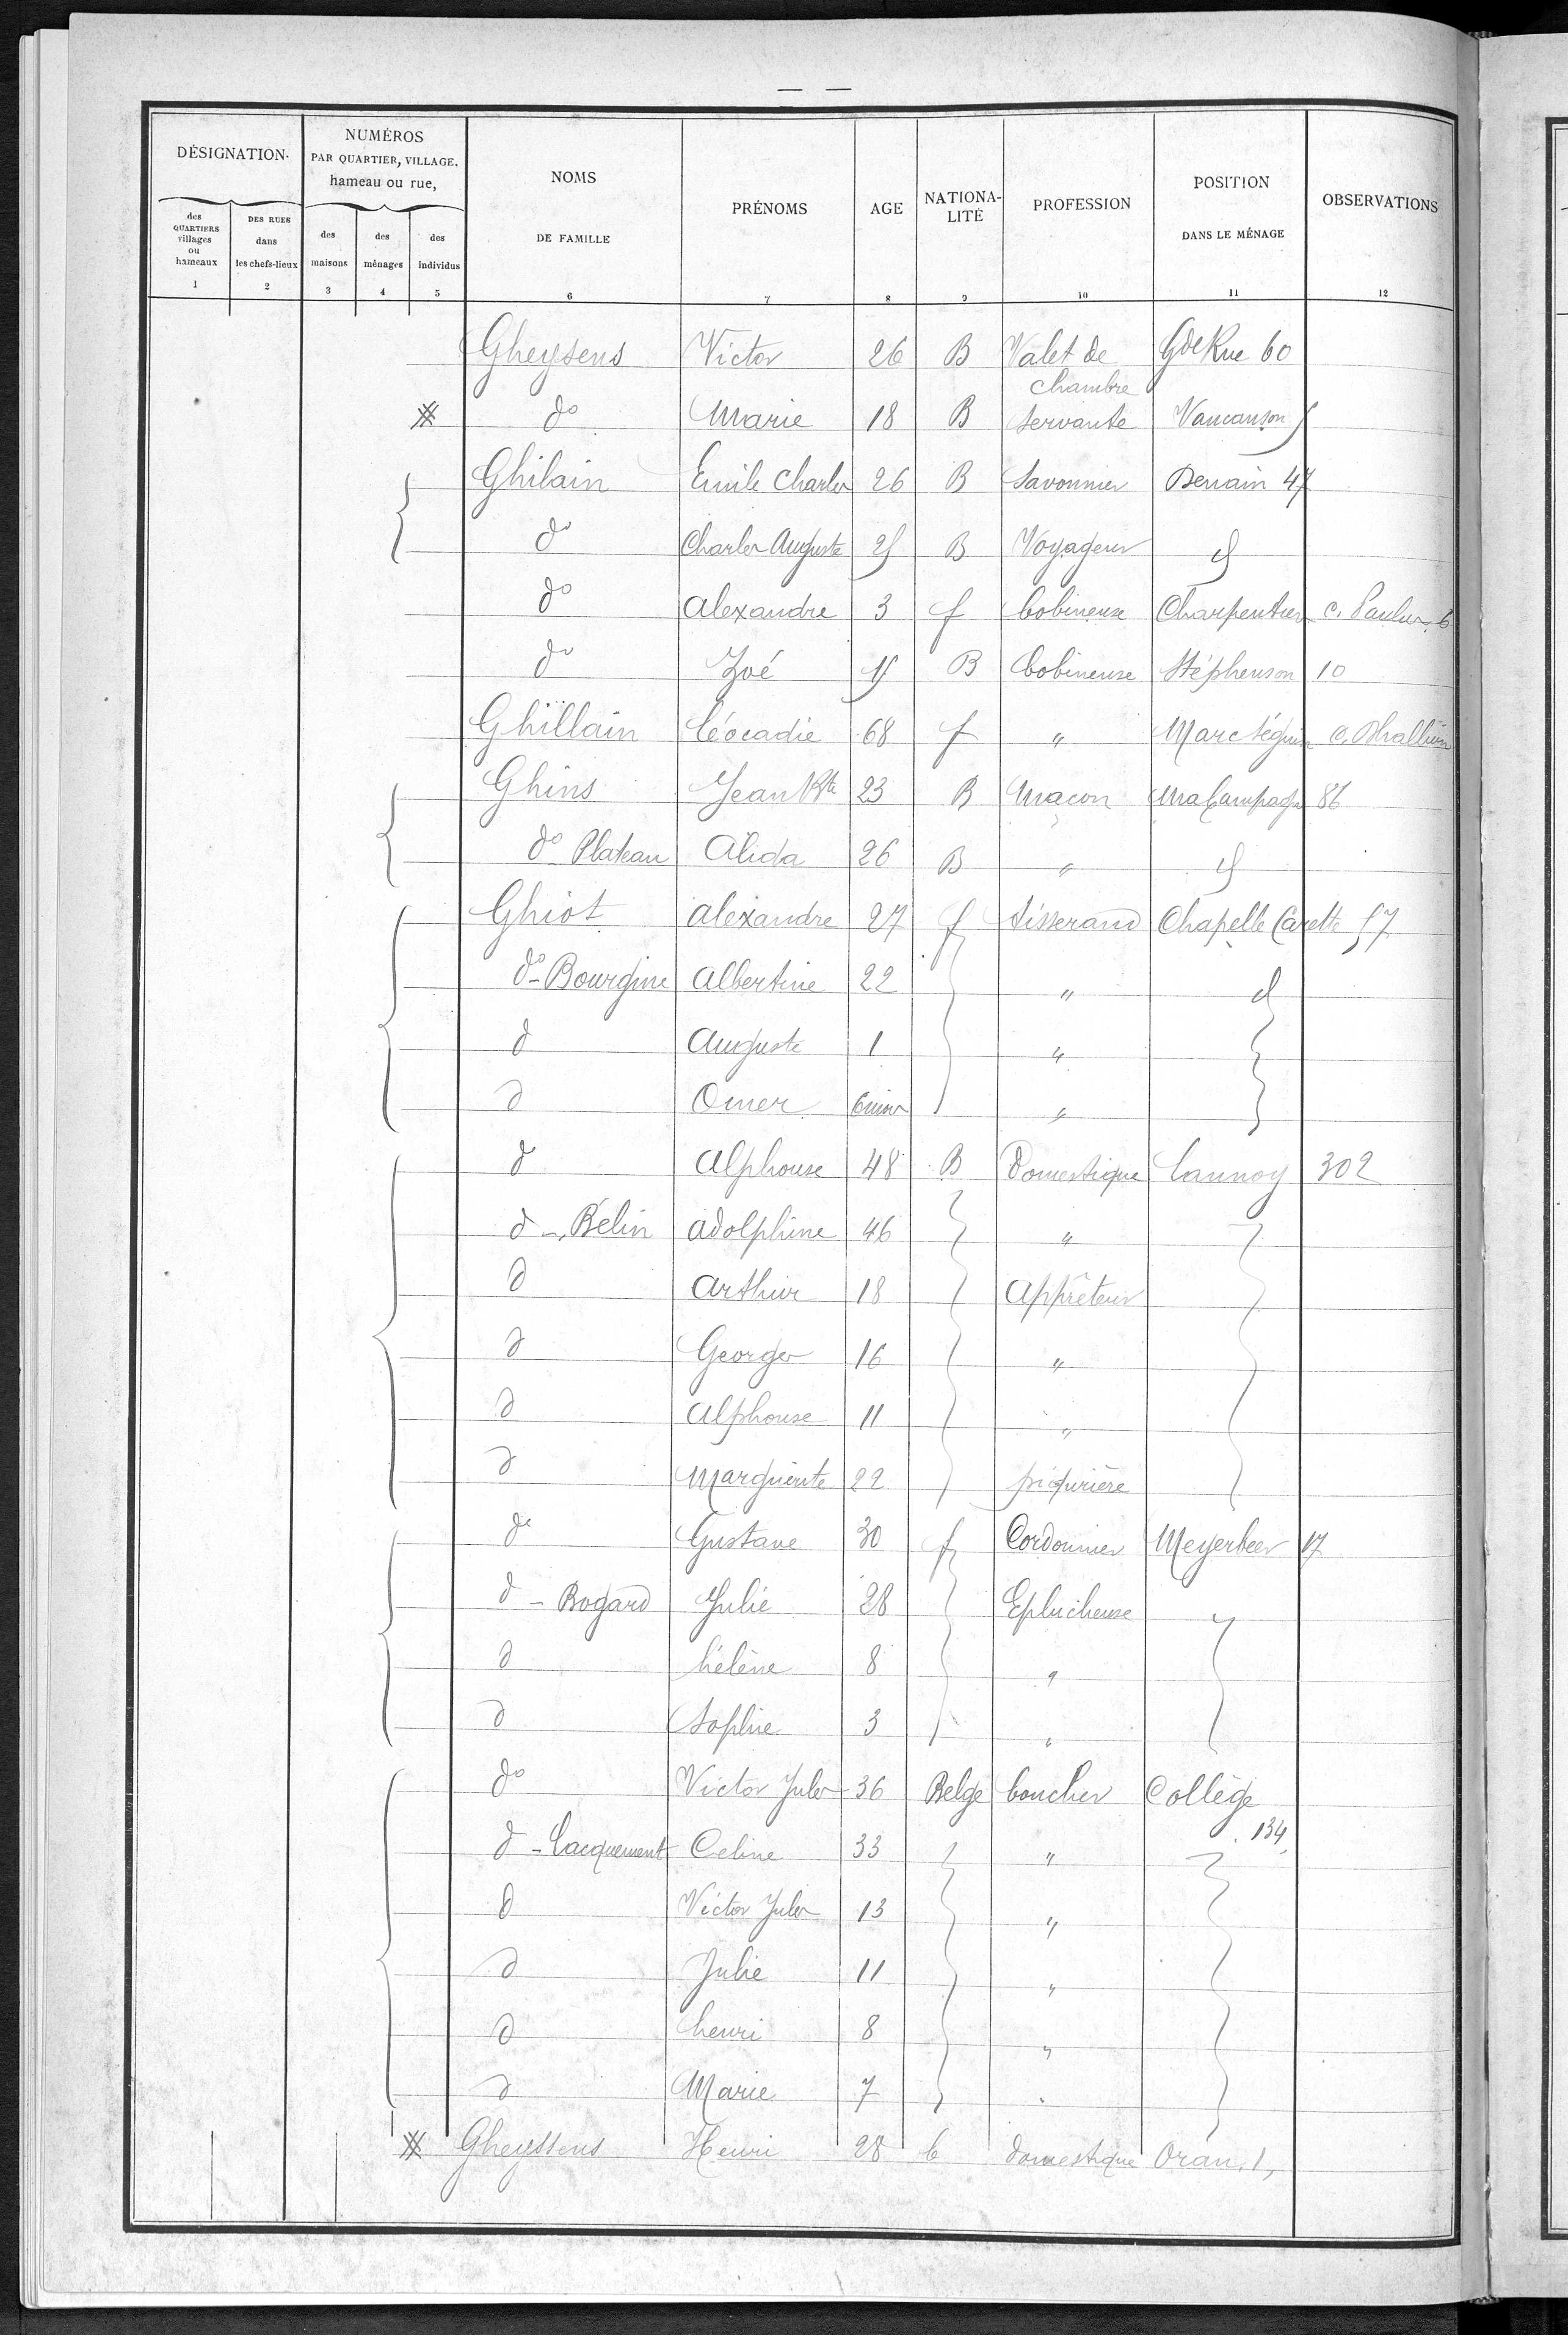 — —
DÉSIGNATION.
NUMÉROS
PAR QUARTIER, VILLAGE,
hameau ou rue,
NOMS
DE FAMILLE
PRÉNOMS
AGE
NATIONA-
LITÉ
PROFESSION
POSITION
DANS LE MÉNAGE
OBSERVATIONS
des
QUARTIERS
villages
ou
hameaux
DES RUES
dans
les chefs-lieux
des
maisons
des
ménages
des
individus
1 2 3 4 5 6 7 8 9 10 11 12
Gheysens Victor 26 B Valet de Gde Rue 60
chambre
do Marie 18 B servante Vaucanson 5
Ghilain Emile Charles 26 B Savonnier Denain 47
do Charles Auguste 25 B Voyageur d
do Alexandre 3 f bobineuse Charpentier c. 6
do Zoé 15 B bobineuse Stéphenson 10
Ghillain Léocadie 68 f " Marc Séguin c. Dhalluin
Ghins Jean Bte 23 B Maçon Ma Campagne 86
do Plateau Alida 26 B " d
Ghiot Alexandre 27 f tisserand Chapelle Carette 57
do - Bourgine Albertine 22 " d
d Auguste 1 "
d Omer 6 mois "
d Alphonse 48 B Domestique Lannoy 302
d - Bélin Adolphine 46 "
d Arthur 18 Apprêteur
d Georges 16 "
d Alphonse 11 "
d Marguerite 22 piqurière
do Gustave 30 f Cordonnier Meyerbeer 17
d - Bogard Julie 28 Eplucheuse "
d hélène 8 "
d Sophie 3 "
do Victor Jules 36 Belge boucher Collège
134
d - Lacquement Celine 33 "
d Victor Jules 13 "
d Julie 11 "
d henri 8 "
d Marie 7 "
Gheyssens Henri 28 b domestique Oran, 1,